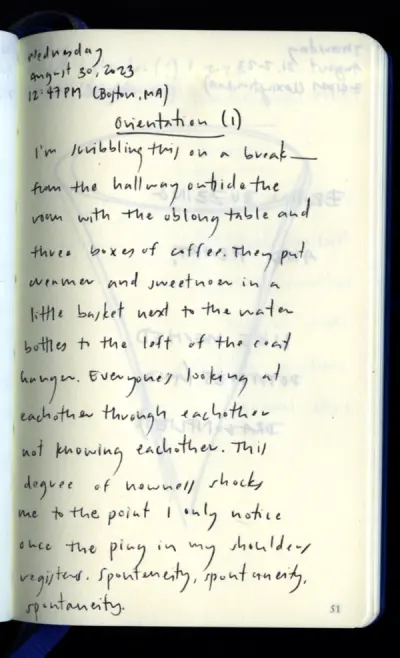 Wednesday
August 30, 2023
12:47 PM (Boston, MA)
Orientation (1)
I'm scribbling this on a break—
from the hallway outside the
room with the oblong table and
three boxes of coffee. They put
creamer and sweetner in a
little basket next to the water
bottles to the left of the coat
hanger. Everyone's looking at
eachother through eachother
not knowing eachother. This
degree of newness shocks
me to the point I only notice
once the ping in my shoulders
registers. Spontaneity, spontaneity,
spontaneity.
51